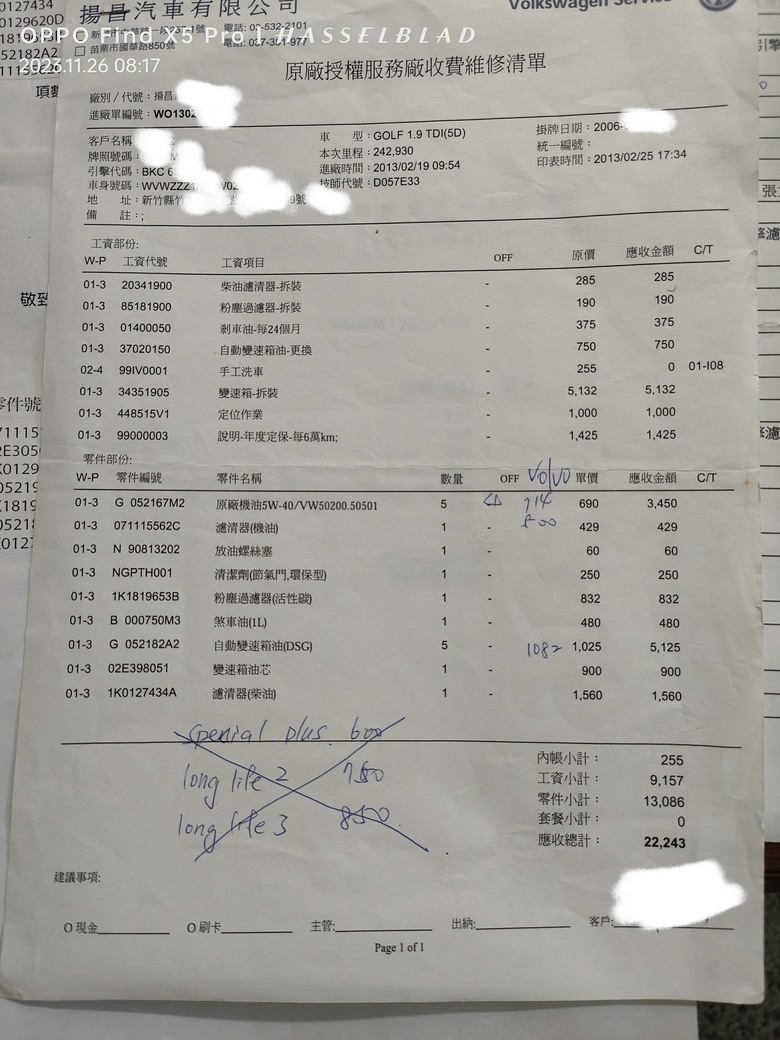 揚昌汽車有限公司
Volkswagen Service
電話：03-532-2101
苗栗市國華路850號 電話：037-351-977
OPPO Find X5 Pro | HASSELBLAD
2023.11.26 08:17
原廠授權服務廠收費維修清單
廠別／代號：揚昌
進廠單編號：WO1302
客戶名稱 車 型：GOLF 1.9 TDI(5D) 掛牌日期：2006-
牌照號碼： 本次里程：242,930 統一編號：
引擎代碼：BKC 進廠時間：2013/02/19 09:54 印表時間：2013/02/25 17:34
車身號碼：WVWZZZ 技師代號：D057E33
地 址：新竹縣竹 9號
備 註：;
工資部份:
W-P 工資代號 工資項目 OFF 原價 應收金額 C/T
01-3 20341900 柴油濾清器-拆裝 - 285 285
01-3 85181900 粉塵過濾器-拆裝 - 190 190
01-3 01400050 剎車油-每24個月 - 375 375
01-3 37020150 自動變速箱油-更換 - 750 750
02-4 99IV0001 手工洗車 - 255 0 01-I08
01-3 34351905 變速箱-拆裝 - 5,132 5,132
01-3 448515V1 定位作業 - 1,000 1,000
01-3 99000003 說明-年度定保-每6萬km; - 1,425 1,425
零件部份:
W-P 零件編號 零件名稱 數量 OFF VOLVO 單價 應收金額 C/T
01-3 G 052167M2 原廠機油5W-40/VW50200.50501 5 714 690 3,450
01-3 071115562C 濾清器(機油) 1 - 800 429 429
01-3 N 90813202 放油螺絲塞 1 - 60 60
01-3 NGPTH001 清潔劑(節氣門,環保型) 1 - 250 250
01-3 1K1819653B 粉塵過濾器(活性碳) 1 - 832 832
01-3 B 000750M3 煞車油(1L) 1 - 480 480
01-3 G 052182A2 自動變速箱油(DSG) 5 - 1082 1,025 5,125
01-3 02E398051 變速箱油芯 1 - 900 900
01-3 1K0127434A 濾清器(柴油) 1 - 1,560 1,560
spenial plus 600
long life 2 750
long life 3 850
內帳小計： 255
工資小計： 9,157
零件小計： 13,086
套餐小計： 0
應收總計： 22,243
建議事項:
O 現金 O 刷卡 主管: 出納: 客戶:
Page 1 of 1